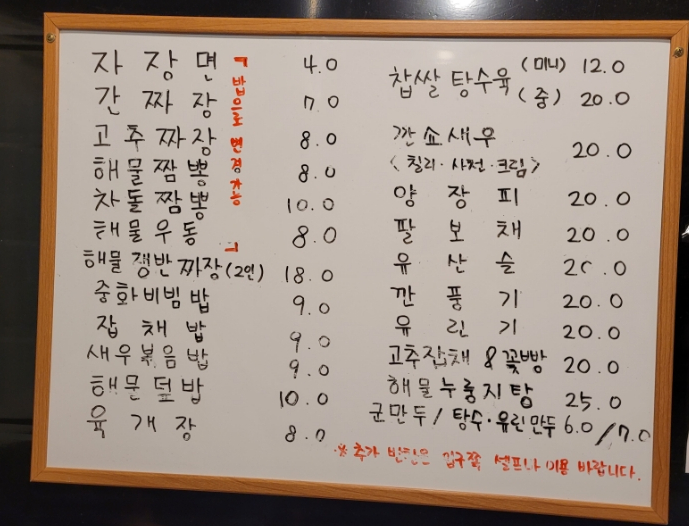 자장면 4.0
간짜장 7.0
고추짜장 8.0
해물짬뽕 8.0
차돌짬뽕 10.0
해물우동 8.0
밥으로 변경가능
해물쟁반짜장(2인) 18.0
중화비빔밥 9.0
잡채밥 9.0
새우볶음밥 9.0
해물덮밥 10.0
육개장 8.0
찹쌀탕수육 (미니) 12.0
(중) 20.0
깐쇼새우 20.0
<칠리·사천·크림>
양장피 20.0
팔보채 20.0
유산슬 20.0
깐풍기 20.0
유린기 20.0
고추잡채&꽃빵 20.0
해물누룽지탕 25.0
군만두/탕수·유린만두 6.0/7.0
※추가 반찬은 입구쪽 셀프바 이용 바랍니다.